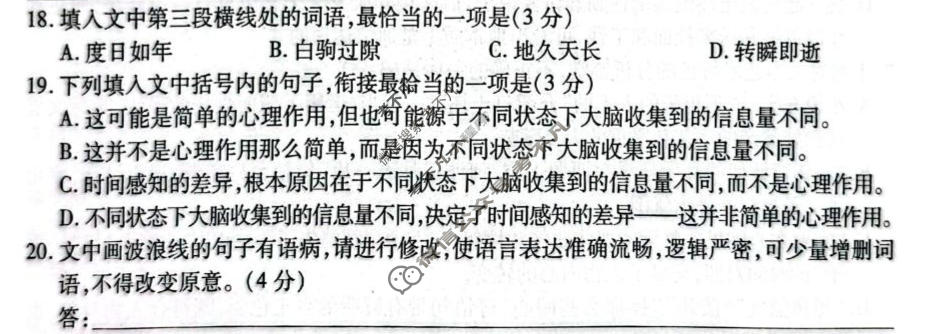 18. 填入文中第三段横线处的词语,最恰当的一项是(3 分)
A. 度日如年 B. 白驹过隙 C. 地久天长 D. 转瞬即逝
19. 下列填入文中括号内的句子,衔接最恰当的一项是(3 分)
A. 这可能是简单的心理作用,但也可能源于不同状态下大脑收集到的信息量不同。
B. 这并不是心理作用那么简单,而是因为不同状态下大脑收集到的信息量不同。
C. 时间感知的差异,根本原因在于不同状态下大脑收集到的信息量不同,而不是心理作用。
D. 不同状态下大脑收集到的信息量不同,决定了时间感知的差异——这并非简单的心理作用。
20. 文中画波浪线的句子有语病,请进行修改,使语言表达准确流畅,逻辑严密,可少量增删词
语,不得改变原意。(4 分)
答: